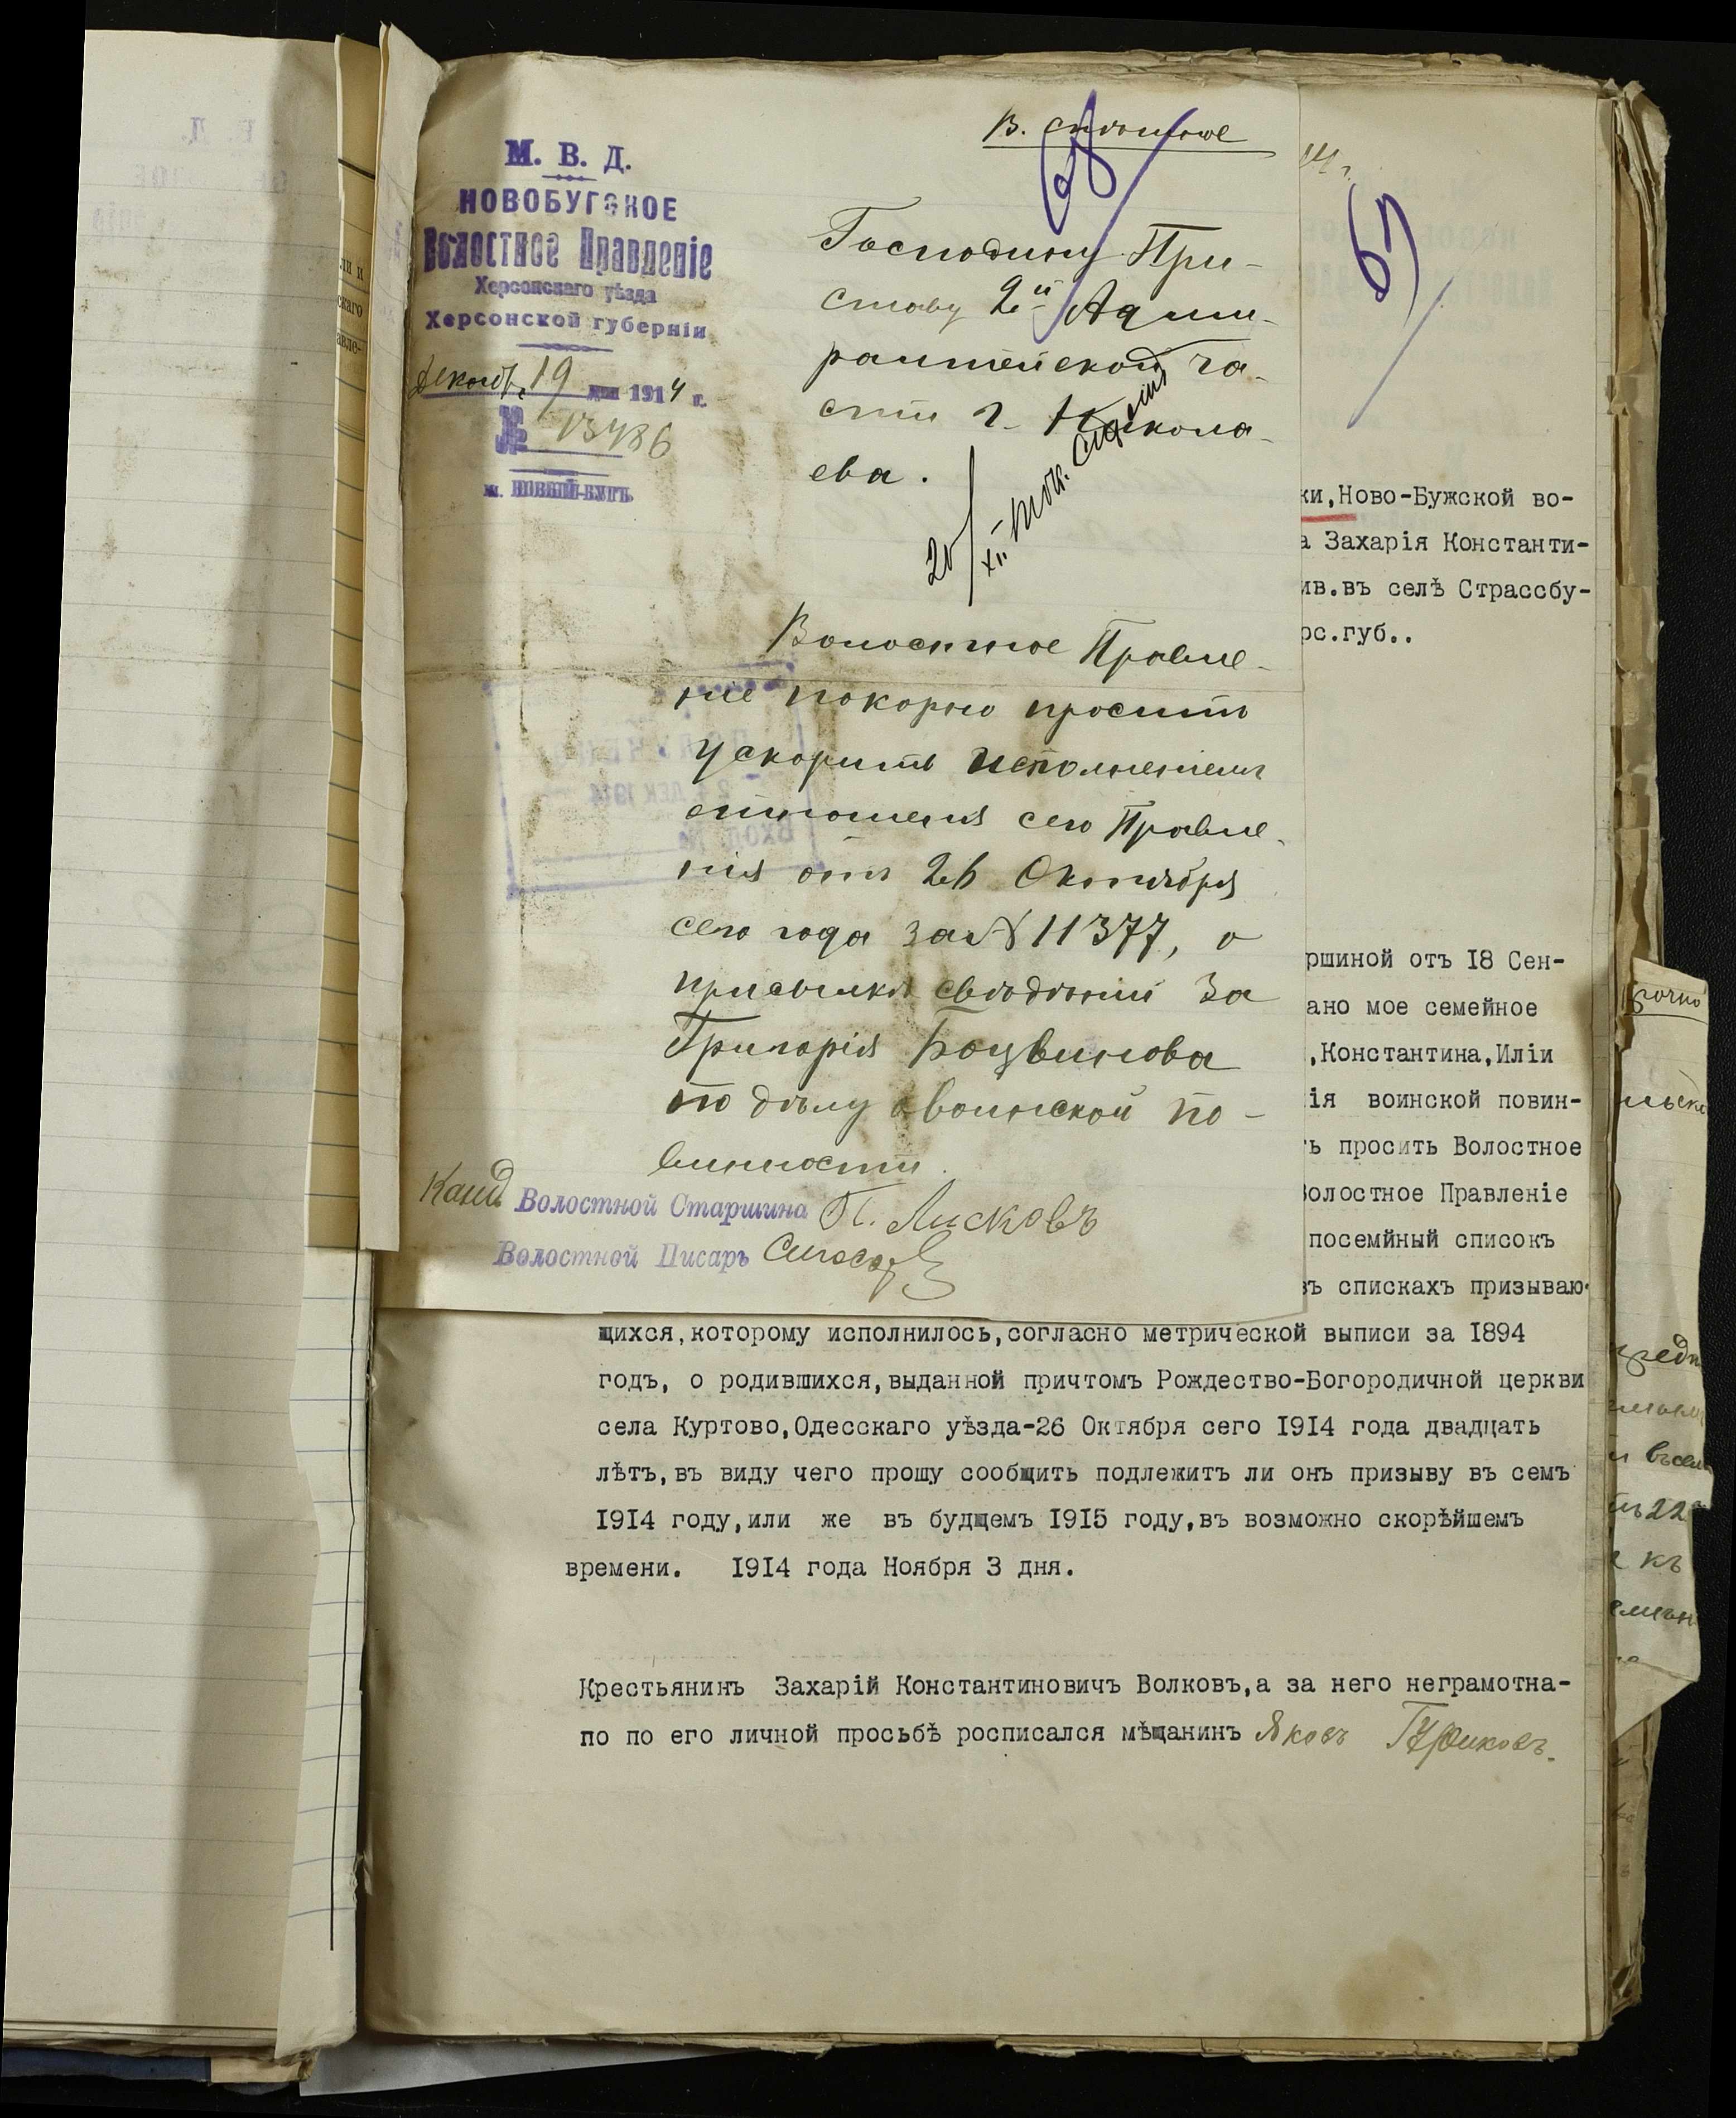 В. спѣшное
68
М. В. Д.
НОВОБУГСКОЕ
Волостное Правленіе
Херсонскаго уѣзда
Херсонской губерніи
19 дня 1914 г.
№ 13486
м. НОВЫЙ-БУГЪ
Господину При-
ставу 2й Адми-
ралтейской ча-
сти г. Никола-
ева.
20/XII
Волостное Правле-
ніе покорно проситъ
ускорить исполненіемъ
отношенія сего Правле-
нія отъ 26 Октября
сего года за № 11377, о
присылкѣ свѣдѣній за
Григорія Боцвинова
по дѣлу о воинской по-
винности.
Канд. Волостной Старшина П. Лисковъ
Волостной Писарь
14 г.
67
ки,Ново-Бужской во-
а Захарія Константи-
ив.въ селѣ Страссбу-
рс.губ..
ршиной отъ 18 Сен-
ано мое семейное
,Константина,Иліи
ія воинской повин-
ъ просить Волостное
Волостное Правленіе
посемйный списокъ
въ спискахъ призываю-
щихся,которому исполнилось,согласно метрической выписи за 1894
годъ, о родившихся,выданной причтомъ Рождество-Богородичной церкви
села Куртово,Одесскаго уѣзда-26 Октября сего 1914 года двадцать
лѣтъ,въ виду чего прошу сообщить подлежитъ ли онъ призыву въ семъ
1914 году,или же въ будщемъ 1915 году,въ возможно скорѣйшемъ
времени. 1914 года Ноября 3 дня.
Крестьянинъ Захарій Константиновичъ Волковъ,а за него неграмотна-
по по его личной просьбѣ росписался мѣщанинъ Яковъ